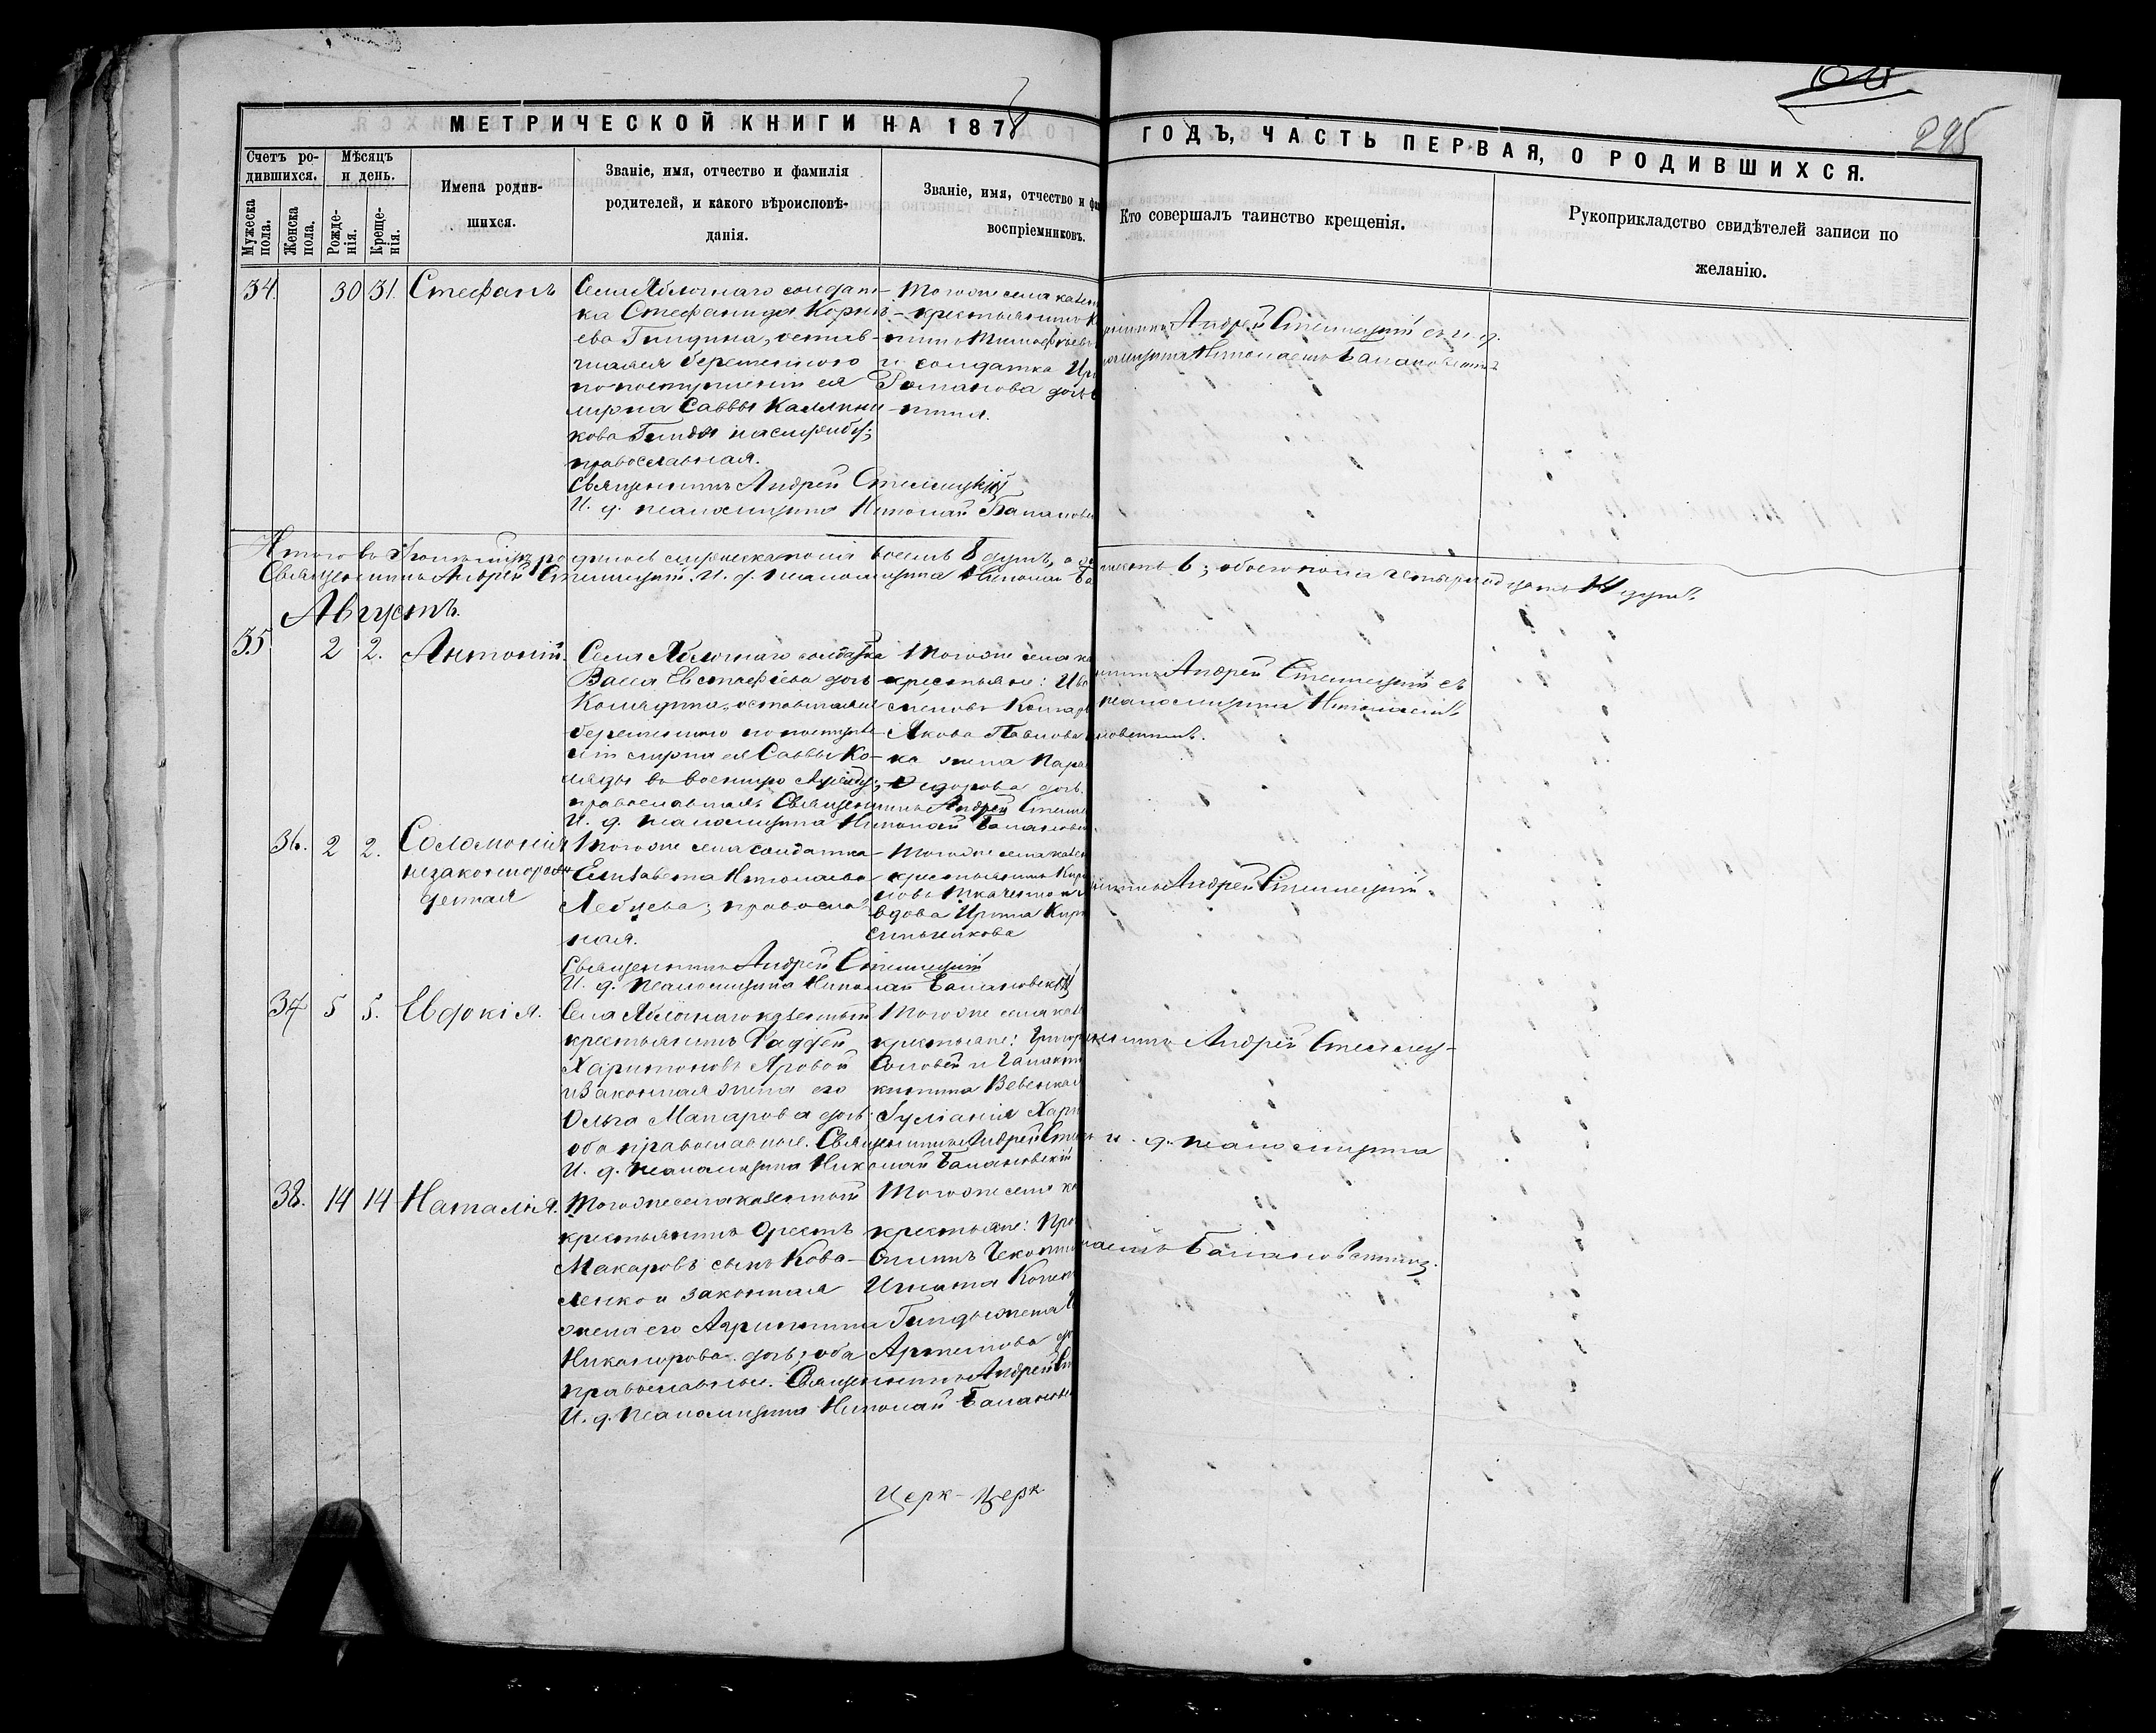 295
МЕТРИЧЕСКОЙ КНИГИ НА 1878 ГОДЪ, ЧАСТЬ ПЕРВАЯ, О РОДИВШИХСЯ.
Счетъ родившихся.
Мужеска пола.
Женска пола.
Мѣсяцъ и день.
Рожденія.
Крещенія.
Имена родившихся.
Званіе, имя, отчество и фамилія родителей, и какого вѣроисповѣданія.
Званіе, имя, отчество и фа
воспріемниковъ.
Кто совершалъ таинство крещенія.
Рукоприкладство свидѣтелей записи по желанію.
34. 30 31. Стефанъ
Села Яблочнаго солдат-
ка Стефанида Корнил-
ева Гиндина, оставшаяся беременною
по поступленіи ея
мужа Саввы Калинни
кова Гинды на службу;
православная.
Священникъ Андрей Стеллецкій
И. д. псаломщика Николай Балановс
Тогоже села казен
крестьянинъ
и солдатка Ир
Романова дочь
Андрей Стеллецкій съ и. д.
псаломщика Николаемъ Балановскимъ
Итого въ Іюлѣ мѣсяцѣ родилось мужеска пола восемь 8 душъ, а
шесть 6; обоего пола четырнадцать 14 душъ.
Священникъ Андрей Стеллецкій. И. д. псаломщика Николай Ба
Августъ.
35 2 2. Антоній.
Села Яблочнаго солдатка
Васса Евстафіева дочь
Колядина, оставшаяся
беременною по поступле
ніи мужа ея Саввы Ко-
ляды въ военную службу;
православная. Священникъ Андрей Стелле
И. д. псаломщика Николай Балановс
Тогоже села ка
крестьяне: Ива
Якова Павлова
ка жена Пара
Ѳедорова дочь.
Андрей Стеллецкій съ
псаломщика Николаемъ
новскимъ.
36. 2 2. Соломонія
незаконнорож
денная
Тогоже села солдатка
Елисавета Николаева
Лебцева; православ
ная.
Священникъ Андрей Стеллецкій
И. д. псаломщика Николай Балановскій
Тогоже села казен
крестьянинъ Кир
ловъ Ткаченко и
вдова Ирина Кирі
Андрей Стеллецкій
37 5 5. Евдокія.
Села Яблочнаго казенный
крестьянинъ Фаддей
Харитоновъ Яровой
и законная жена его
Ольга Макарова дочь;
оба православные. Священникъ Андрей Стелле
И. д. псаломщика Николай Балановскій
Тогоже села каз
крестьяне: Григор
Соловей и Галакті
Харі
Андрей Стеллец-
и. д. псаломщика
38. 14 14 Наталія.
Тогоже села казенный
крестьянинъ Орестъ
Макаровъ сынъ Кова-
ленко и законная
жена его Агрипина
Никанорова дочь; оба
православные. Священникъ Андрей Сте
И. д. псаломщика Николай Балановс
Тогоже села ка
крестьяне: Про
Игната
Гинды жена
Артемова до
лаемъ Балановскимъ.
Церк- Церк